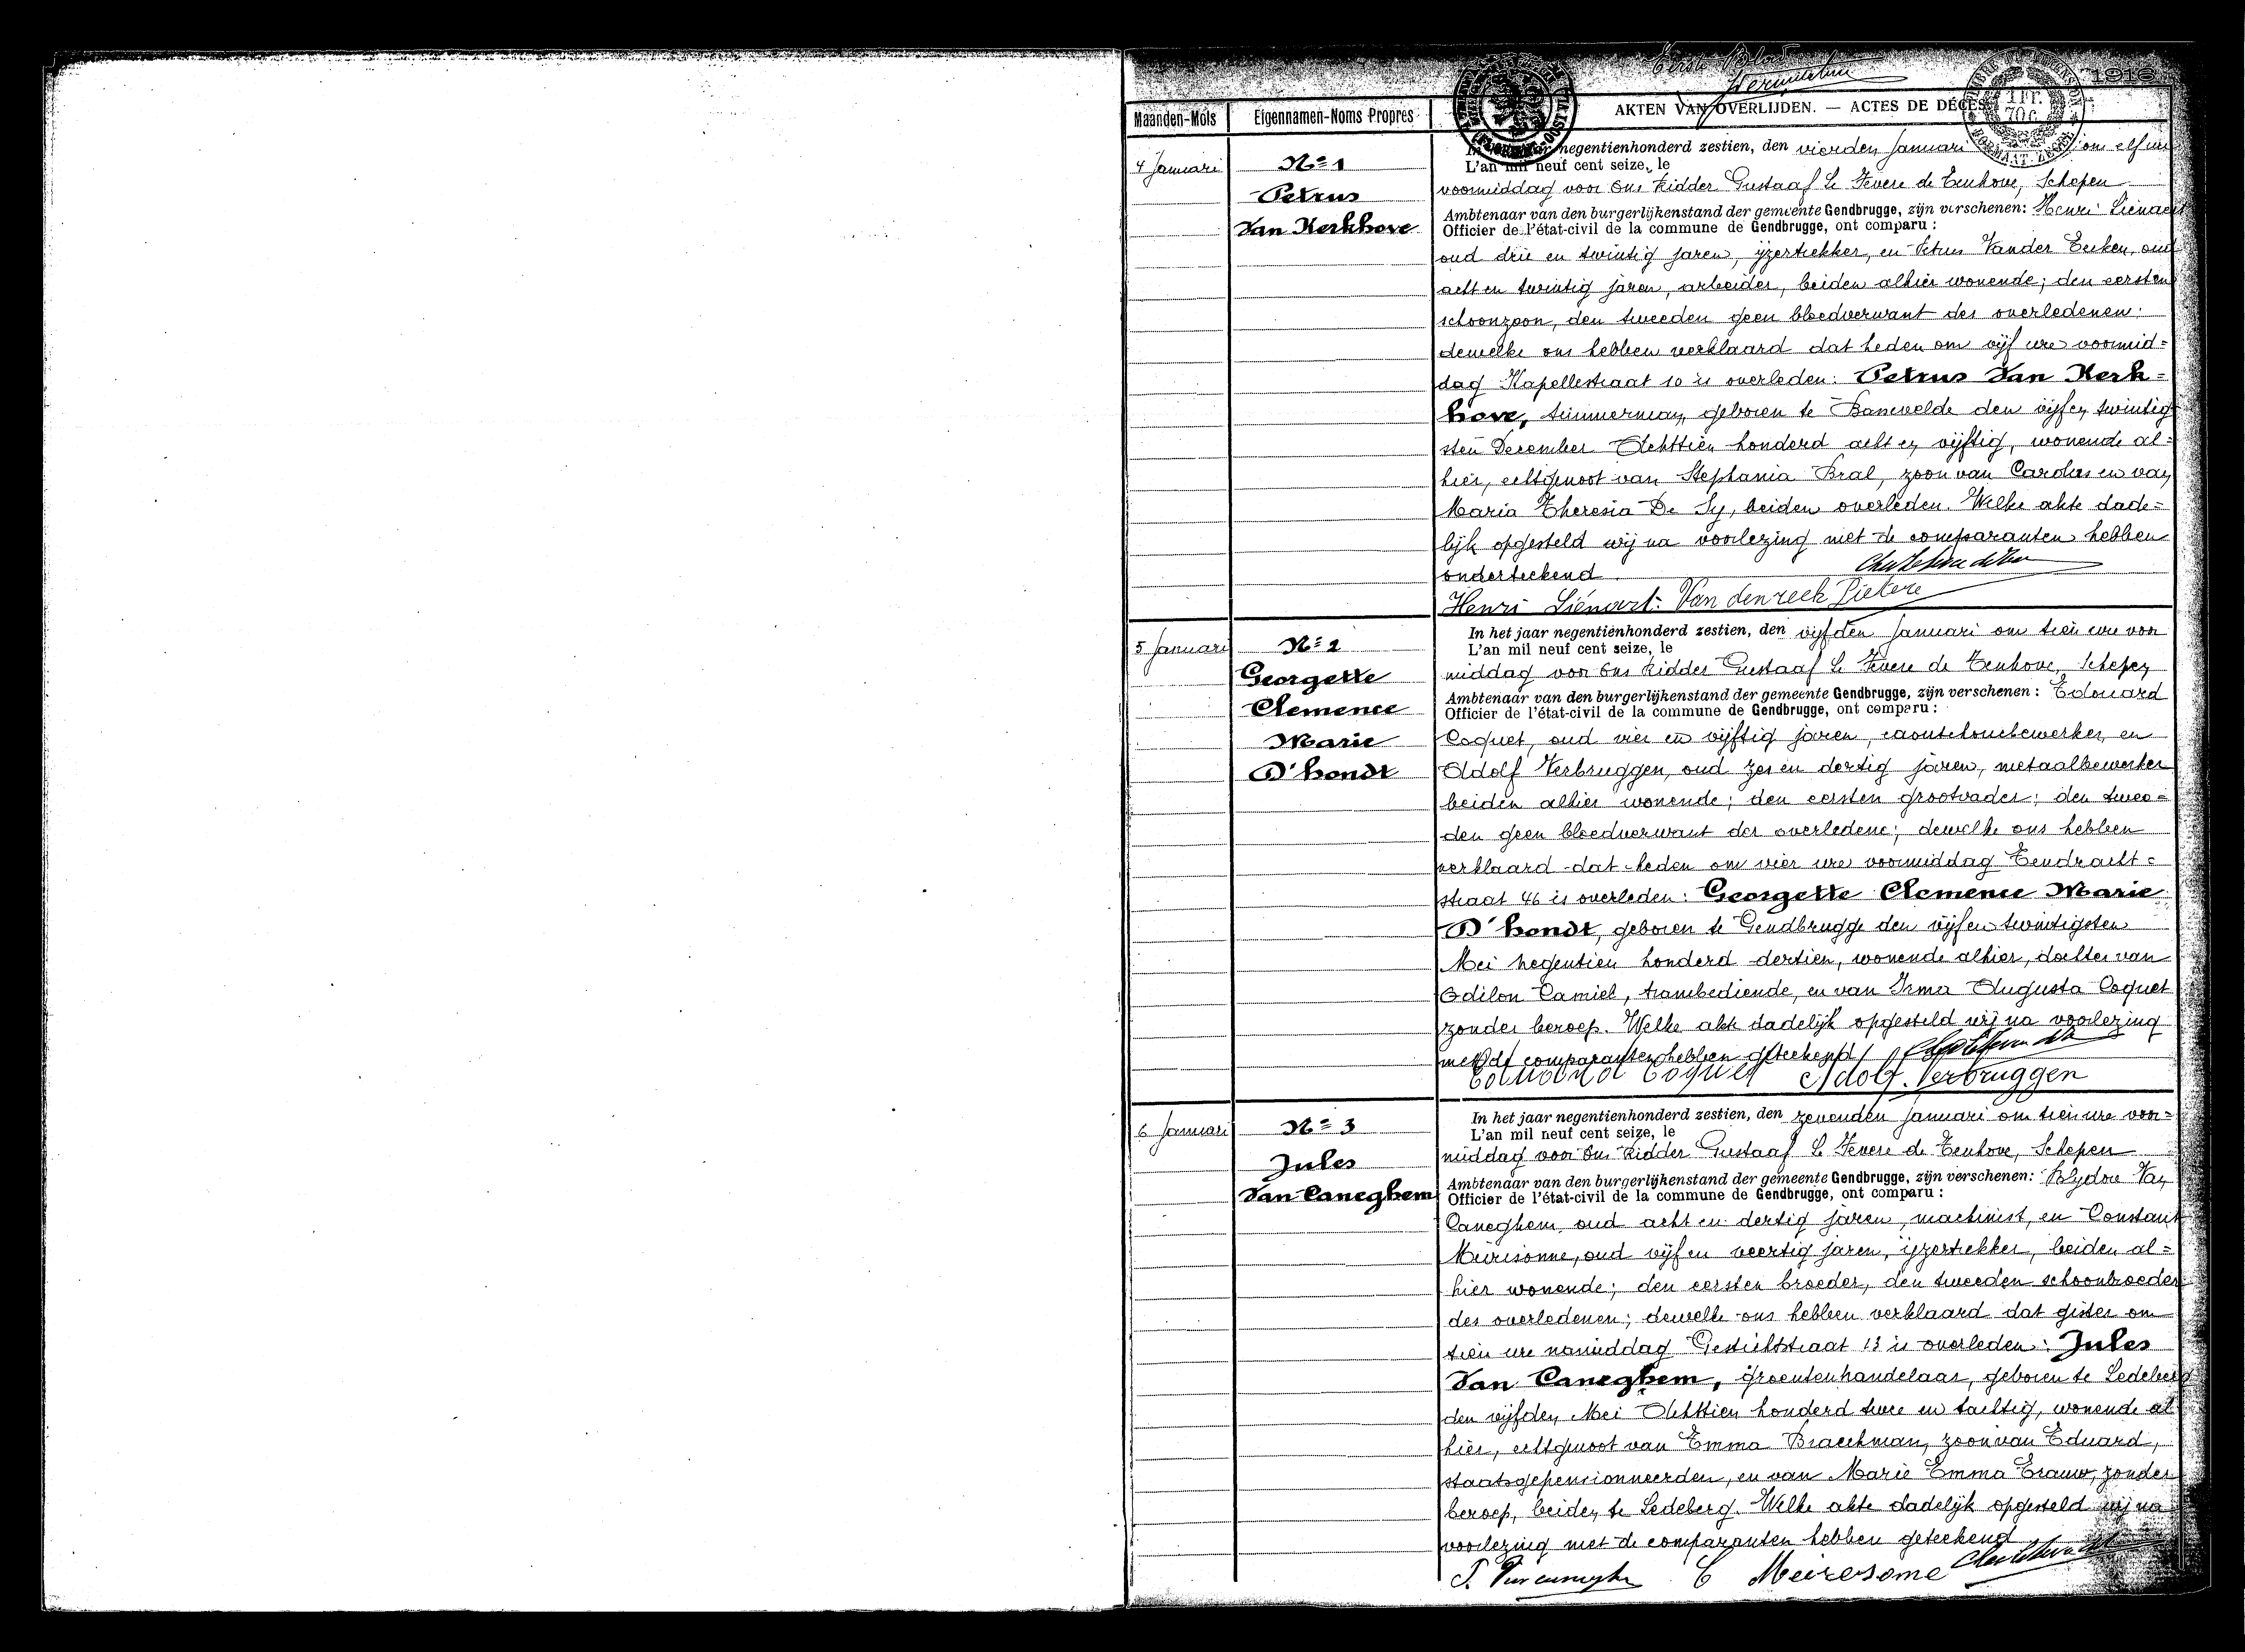 Eerste Blad
1916
1 Fr.
70 c.
Maanden-Mois
Eigennamen-Noms Propres
AKTEN VAN OVERLIJDEN. — ACTES DE DÉCÈS
4 Januari
No 1
Petrus
Van Kerkhove
negentienhonderd zestien, den vierden Januari om elf ure
L'an mil neuf cent seize, le
voormiddag voor Ons Ridder Gustaaf Le Fevere de Tenhove, Schepen
Ambtenaar van den burgerlijkenstand der gemeente Gendbrugge, zijn verschenen: Henri Lienaert
Officier de l'état-civil de la commune de Gendbrugge, ont comparu :
oud drie en twintig jaren, ijzertrekker, en Petrus Vander Eecken, oud
acht en twintig jaren, arbeider, beiden alhier wonende; den eersten
schoonzoon, den tweeden geen bloedverwant des overledenen:
dewelke ons hebben verklaard dat heden om vijf ure voormid=
dag Kapellestraat 10 is overleden: Petrus Van Kerk=
hove, timmerman, geboren te den vijfen twintig
sten December Achttien honderd acht en vijftig, wonende al=
hier, echtgenoot van Stephania Bral, zoon van Carolus en van
Maria Theresia De Sy, beiden overleden. Welke akte dade=
lijk opgesteld wij na voorlezing met de comparanten hebben
onderteekend
Henri Liénart. Van denreck Pietere
5 Januari
No 2
Georgette
Clemence
Marie
D'hondt
In het jaar negentienhonderd zestien, den vijfden Januari om tien ure voor
L'an mil neuf cent seize, le
middag voor Ons Ridder Gustaaf Le Fevere de Tenhove, Schepen
Ambtenaar van den burgerlijkenstand der gemeente Gendbrugge, zijn verschenen : Edouard
Officier de l'état-civil de la commune de Gendbrugge, ont comparu :
Coquet, oud vier en vijftig jaren, caoutchoucbewerker, en
Adolf Verbruggen, oud zes en dertig jaren, metaalbewerker
beiden alhier wonende; den eersten grootvader; den twee=
den geen bloedverwant der overledene; dewelke ons hebben
verklaard dat heden om vier ure voormiddag Eendracht=
straat 46 is overleden: Georgette Clemence Marie
D'hondt, geboren te Gendbrugge den vijfen twintigsten
Mei negentien honderd dertien, wonende alhier, dochter van
Odilon Camiel, trambediende, en van Irma Augusta Coquet
zonder beroep. Welke akte dadelijk opgesteld wij na voorlezing
met de comparanten hebben geteekend
Edouard Coquet Adolf. Verbruggen
6 Januari
No 3
Jules
Van Caneghem
In het jaar negentienhonderd zestien, den zevenden Januari om tien ure voor=
L'an mil neuf cent seize, le
middag voor Ons Ridder Gustaaf Le Fevere de Tenhove, Schepen
Ambtenaar van den burgerlijkenstand der gemeente Gendbrugge, zijn verschenen: Van
Officier de l'état-civil de la commune de Gendbrugge, ont comparu :
Caneghem, oud acht en dertig jaren, machinist, en Constant
Meiresonne, oud vijf en veertig jaren, ijzertrekker, beiden al=
hier wonende; den eersten broeder, den tweeden schoonbroeder
des overledenen; dewelke ons hebben verklaard dat gister om
tien ure namiddag Gestichtstraat 13 is overleden: Jules
Van Caneghem, groentenhandelaar, geboren te Ledeberg
den vijfden Mei Achttien honderd twee en tachtig, wonende al
hier, echtgenoot van Emma Braeckman, zoon van Eduard,
staatsgepensionneerden, en van Marie Emma Erauw, zonder
beroep, beiden te Ledeberg. Welke akte dadelijk opgesteld wij na
voorlezing met de comparanten hebben geteekend
C Meiresome